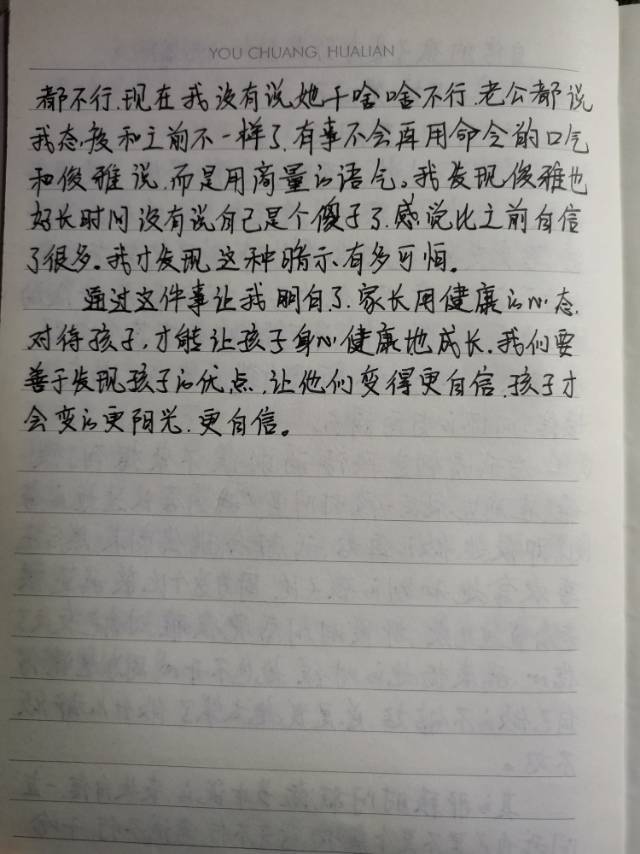 YOU CHUANG HUALIAN
都不行.现在我没有说她干啥啥不行.老公都说
我态度和之前不一样了.有事不会再用命令的口气
和俊雅说.而是用商量的语气。我发现俊雅也
好长时间没有说自己是个傻子了.感觉比之前自信
了很多。我才发现这种暗示有多可怕。
通过这件事让我明白了.家长用健康的心态.
对待孩子,才能让孩子身心健康地成长.我们要
善于发现孩子的优点.让他们变得更自信.孩子才
会变的更阳光.更自信。